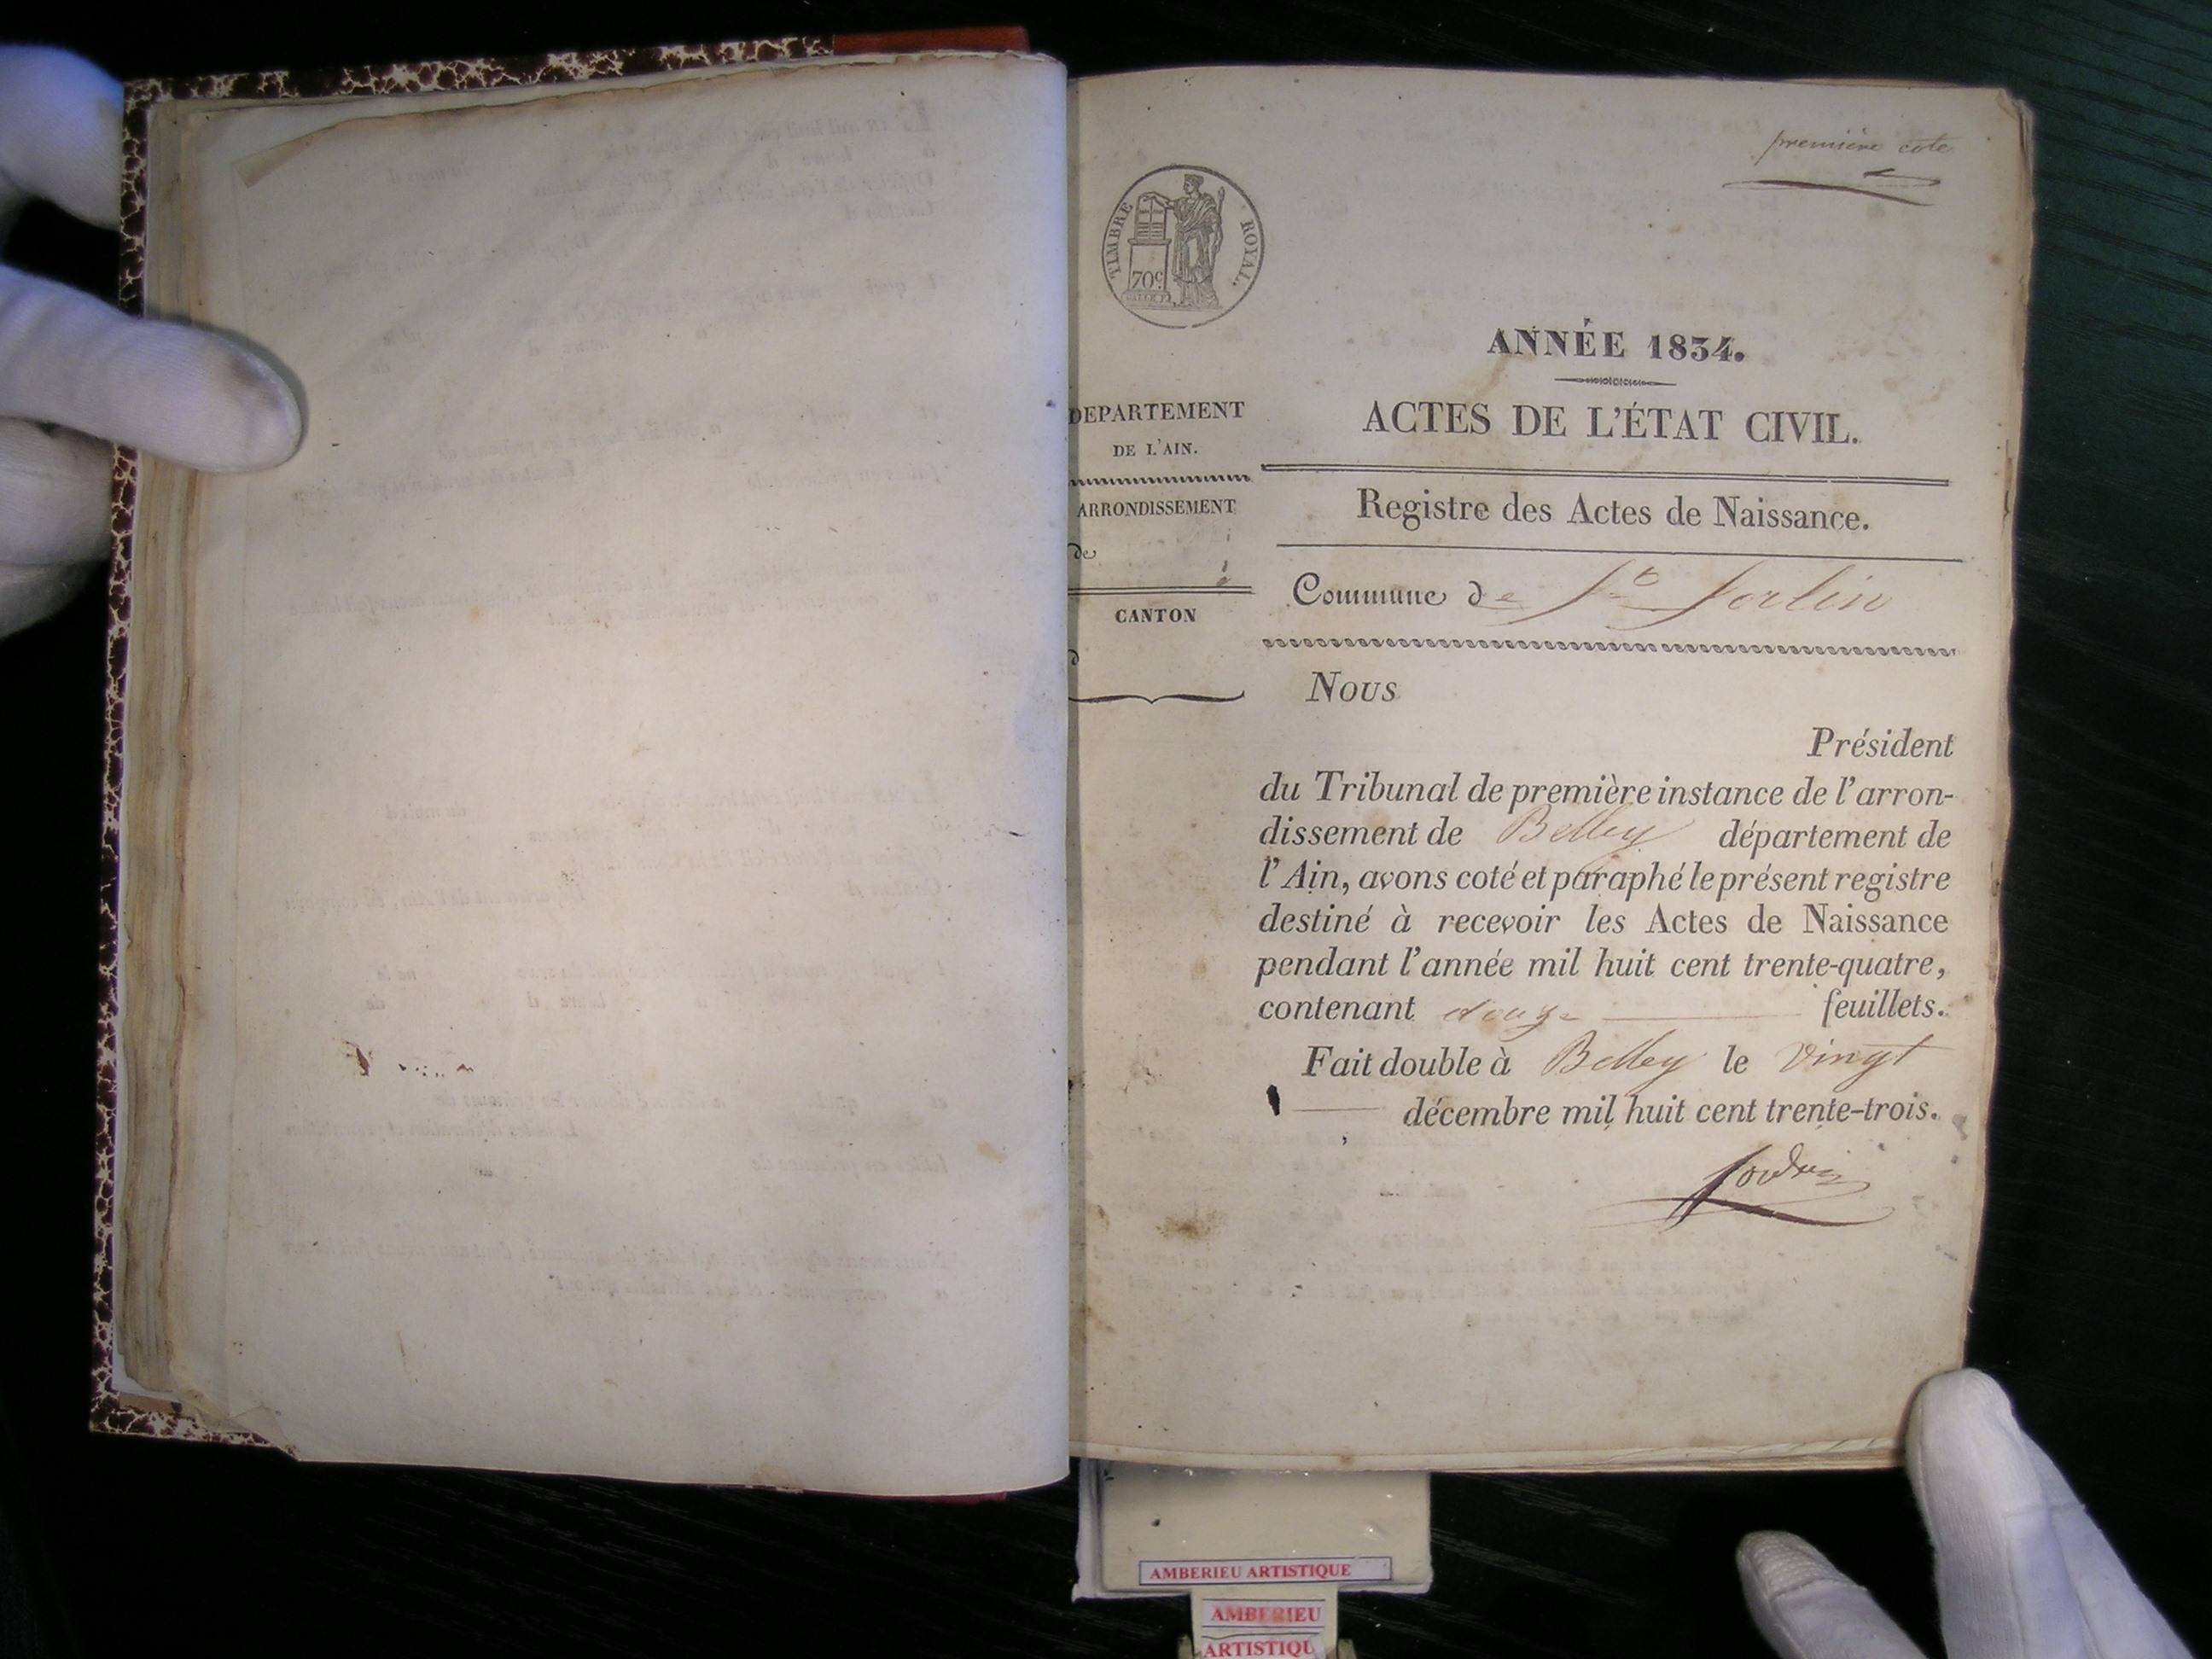 première cote
TIMBRE ROYAL.
70c
ANNÉE 1834.
ACTES DE L'ÉTAT CIVIL.
DEPARTEMENT
DE L'AIN.
ARRONDISSEMENT
de
CANTON
d
Registre des Actes de Naissance.
Commune de St Sorlin
Nous
Président
du Tribunal de première instance de l'arron-
dissement de Belley département de
l'Ain, avons coté et paraphé le présent registre
destiné à recevoir les Actes de Naissance
pendant l'année mil huit cent trente-quatre,
contenant douze feuillets.
Fait double à Belley le vingt
décembre mil huit cent trente-trois.
AMBERIEU ARTISTIQUE
AMBERIEU
ARTISTIQU